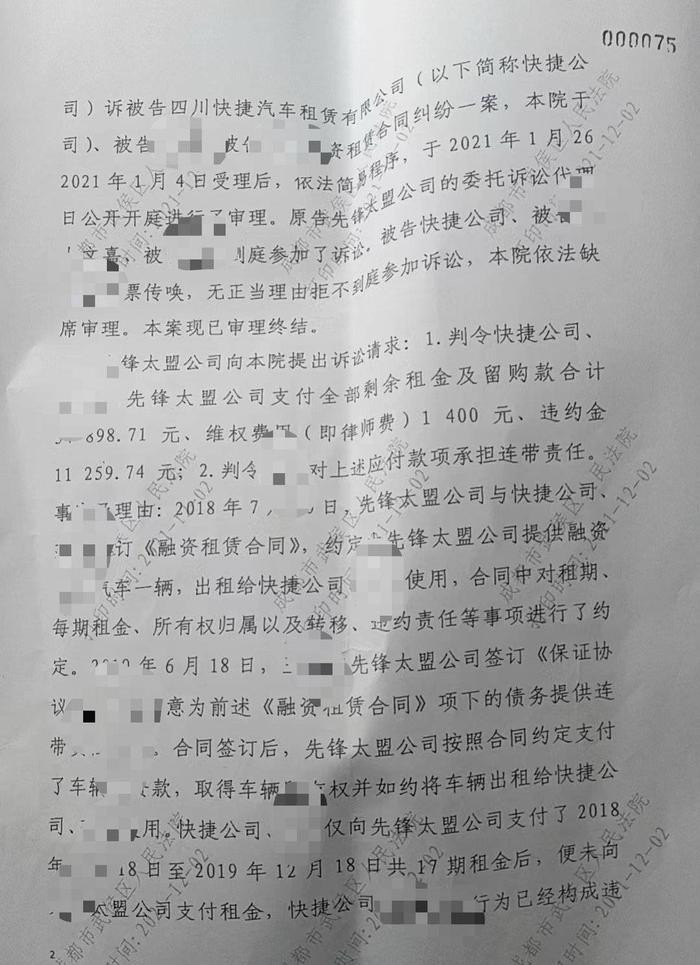 000075
司）诉被告四川快捷汽车租赁有限公司（以下简称快捷公
司）、被告 资租赁合同纠纷一案，本院于
2021年1月4日受理后，依法简易程序，于2021年1月26
日公开开庭进行了审理。原告先锋太盟公司的委托诉讼代理
文嘉，被 到庭参加了诉讼。被告快捷公司、被告
票传唤，无正当理由拒不到庭参加诉讼，本院依法缺
席审理。本案现已审理终结。
锋太盟公司向本院提出诉讼请求：1.判令快捷公司、
先锋太盟公司支付全部剩余租金及留购款合计
898.71元、维权费用（即律师费）1 400元、违约金
11 259.74元；2.判令 对上述应付款项承担连带责任。
事 理由：2018年7 日，先锋太盟公司与快捷公司、
订《融资租赁合同》，约定 先锋太盟公司提供融资
汽车一辆，出租给快捷公司 使用，合同中对租期、
每期租金、所有权归属以及转移、违约责任等事项进行了约
定。 年6月18日， 先锋太盟公司签订《保证协
议 意为前述《融资租赁合同》项下的债务提供连
带 。合同签订后，先锋太盟公司按照合同约定支付
了车辆 款，取得车辆 权并如约将车辆出租给快捷公
司、 用。快捷公司、 仅向先锋太盟公司支付了2018
年 18日至2019年12月18日共17期租金后，便未向
太盟公司支付租金，快捷公司 行为已经构成违
2
成都市武侯区人民法院
打印时间：2021-12-02